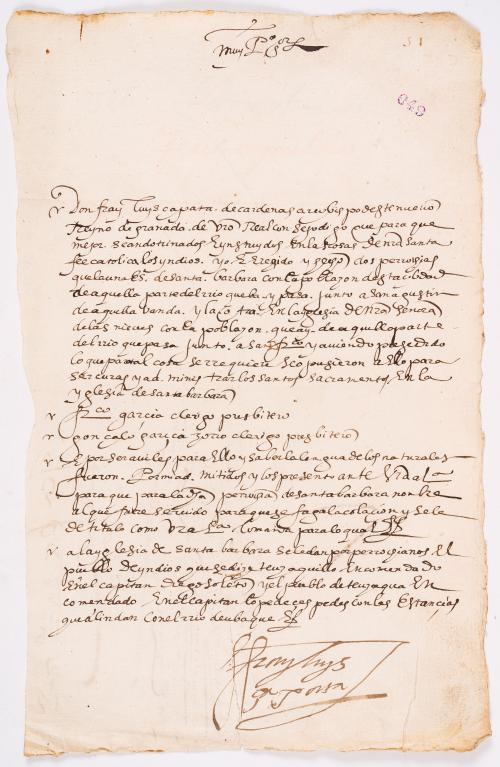 muy Pº sor
51
049
Don fray luys capata. de cardenas arcobispo deste nuevo
Reyno de granada. de vro Real consejo digo que para que
mejor. sean dotrinados Eynstruydos En las cosas de nra santa
fee catolica los yndios. yo. E eregido y dos perroqias
que la una Es. de santa. barbara con la poblazon desta cibdad
de aquella parte del rio que ba y pasa. junto a san agustin
de aquella vanda. y la otra En la yglesia de nra señora
de las nieves con la poblazon. que ay. de aquella parte
del rio que pasa junto. a san frco y aviendo precedido
lo que para tal caso se rrequiere se opusieron a Ello para
ser curas y ad. ministrar los santos sacramentos, En la
yglesia de santa barbara
frco garcia clerigo presbitero
gonçalo garcia zorro clerigo presbitero
E por ser aviles para Ello y saber la lengua de los naturales
fueron. Por mi ad. mitidos y los presento ante V. Real
para que para la dha perroqia de santa barbara nonbre
al que fuere servido para que se haga la colacion y se le
de titulo como vra Rl. lo manda para lo qual
a la yglesia de santa barbara se le dan por perroqianos. El
pueblo de yndios que se dize teuzaquillo. Encomendado
En el capitan diego soleto y el pueblo de teuzaqua En
comendado En el capitan lope de cespedes con las Estancias
que alindan con el rio de ubaque.
fray luys
çapata